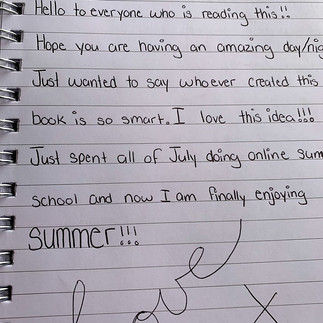 Hello to everyone who is reading this!!
Hope you are having an amazing day/nig
Just wanted to say whoever created this
book is so smart. I love this idea!!!
Just spent all of July doing online sum
school and now I am finally enjoying
summer!!!
love
X